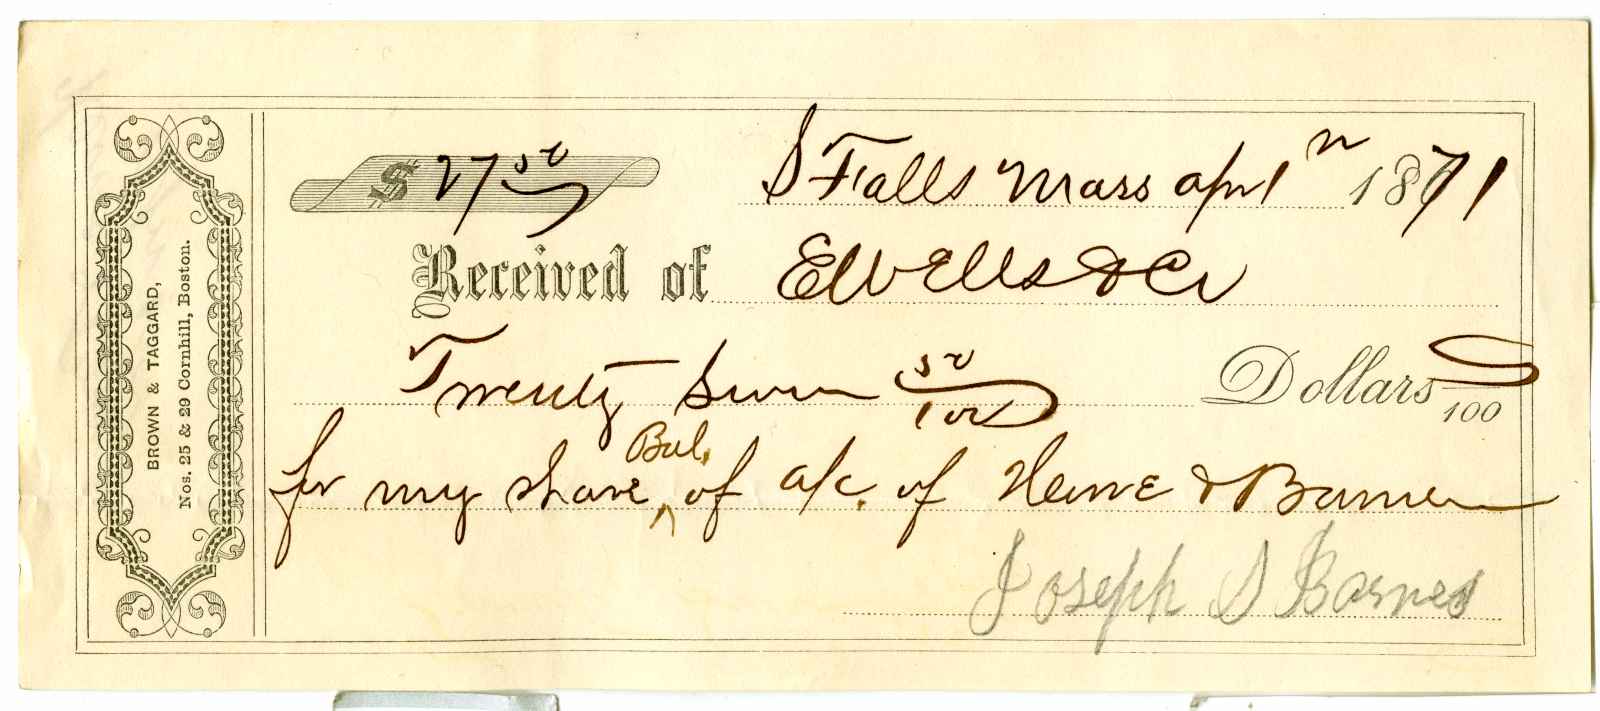 BROWN & TAGGARD,
Nos. 25 & 29 Cornhill, Boston.
$ 27 50
S Falls Mass apr 1 1871
Received of E Wells & Co
Twenty Seven 50/100 Dollars /100
for my share Bal. of a/c. of & Barnes
Joseph S Barnes